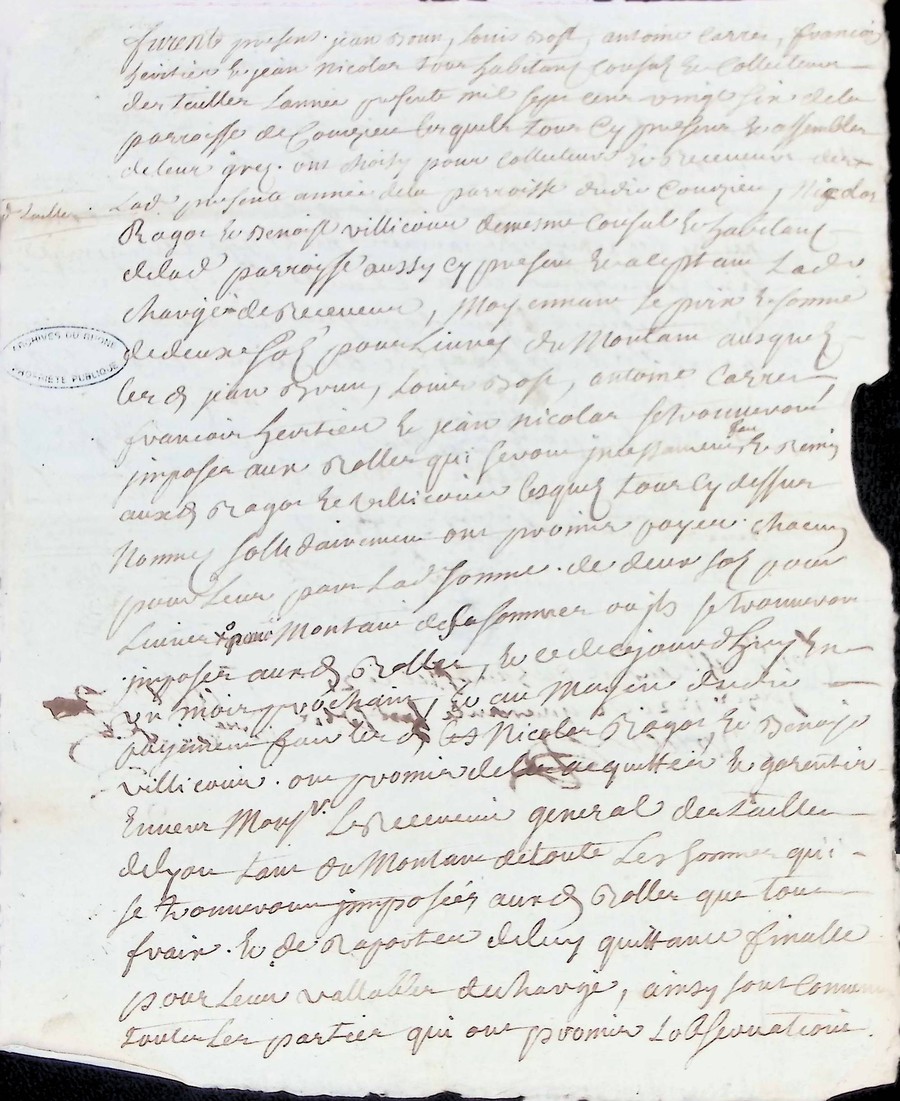 furents presens jean Brun, Louis Bost, antoine Carres, francois
heritier & jean Nicolas tous habitans Consuls & Collecteurs
des tailles Lannée presente mil sept cens vingt six de la
parroisse de Courzieu lesquels tous Cy presens & assembles
de leur gres ont choisy pour Collecteur & Receveurs des
Lad. presente année de la parroisse dudit Courzieu, Nicolas
d. tailles
Ragot & Benoist villicour de mesme Consul & habitans
de lad parroisse aussy Cy presens & aceptant Lad.
charge de Receveur, Moyennant Le prix & somme
de deux sols pour Livres du Montant ausquels
ARCHIVES DU RHONE
PROPRIETE PUBLIQUE
les d jean Brun, Louis Bost, antoine Carres
francois heritier & jean Nicolas se trouveront
imposés aux Rolles qui seront incessament & Remis
aux d Ragot & villicour lesquels tous Cy dessus
Nommés sollidairement ont promis payer chacun
pour Leur part Lad somme de deux sols pour
Livres Montant des sommes ou ils se trouveront
imposés aux d Rolles, & ce de cejourdhuy En
un mois prochain, & au Moyen dudit
payement fait les d Nicolas Ragot & Benoist
villicour ont promis de acquitter & garentir
Envers Monsr. Le Receveur general des tailles
de lyon tant du Montant de toute Les sommes qui
se trouveront imposées aux d Rolles que tous
frais & de Raporter de luy quittance finalle
pour Leur vallables descharge, ainsy sont Convenus
toutes Les parties qui ont promis Lobservation